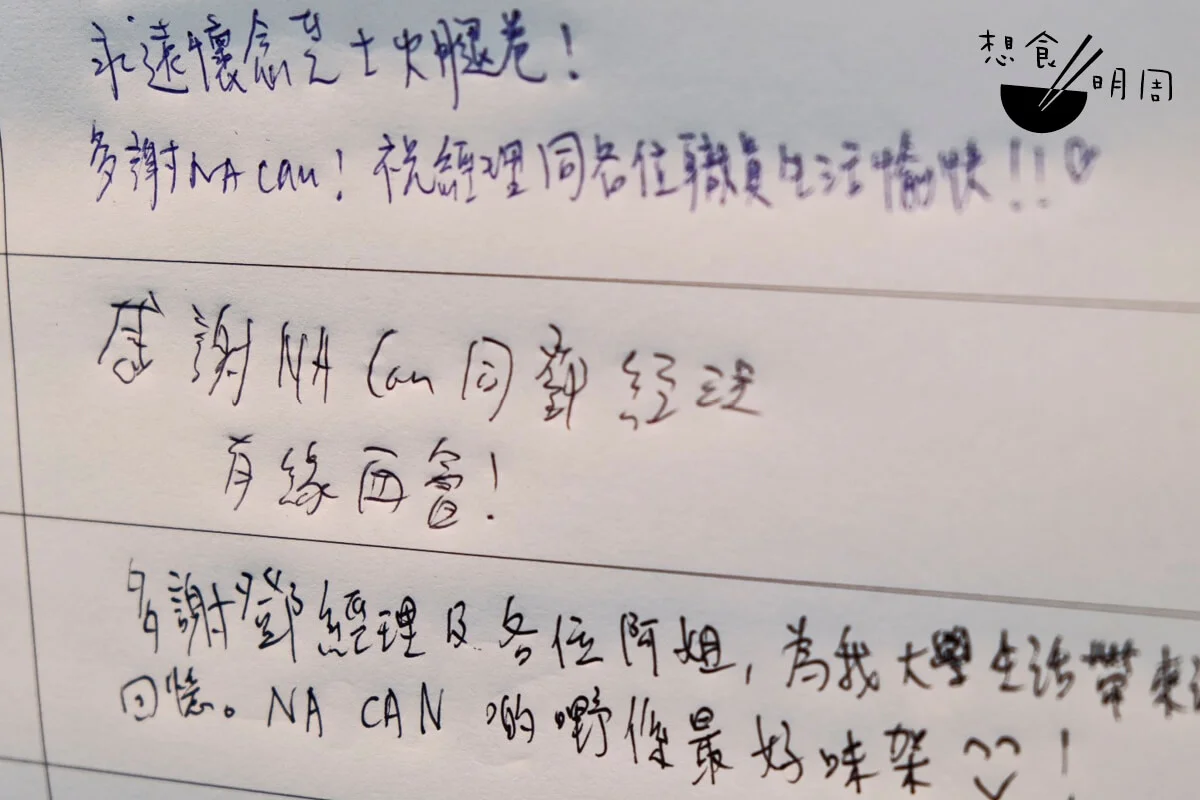 想食
明周
永遠懷念芝士火腿卷!
多謝NA can! 祝經理同各位職員生活愉快!!♡
感謝 NA Can 同鄧經理
有緣再會!
多謝鄧經理及各位阿姐,為我大學生活帶來
回憶。NA CAN 啲嘢係最好味架 !